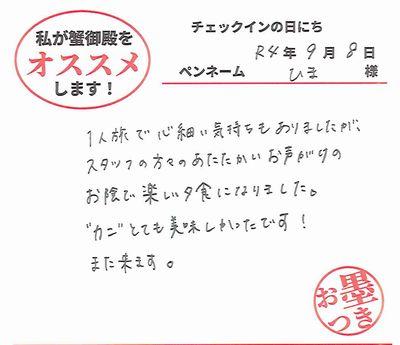 私が蟹御殿を
オススメ
します！
チェックインの日にち
R4年9月8日
ペンネーム ひま 様
1人旅で心細い気持ちもありましたが、
スタッフの方々のあたたかいお声がけの
お陰で楽しい夕食になりました。
"カニ"とても美味しかったです！
また来ます。
お墨つき